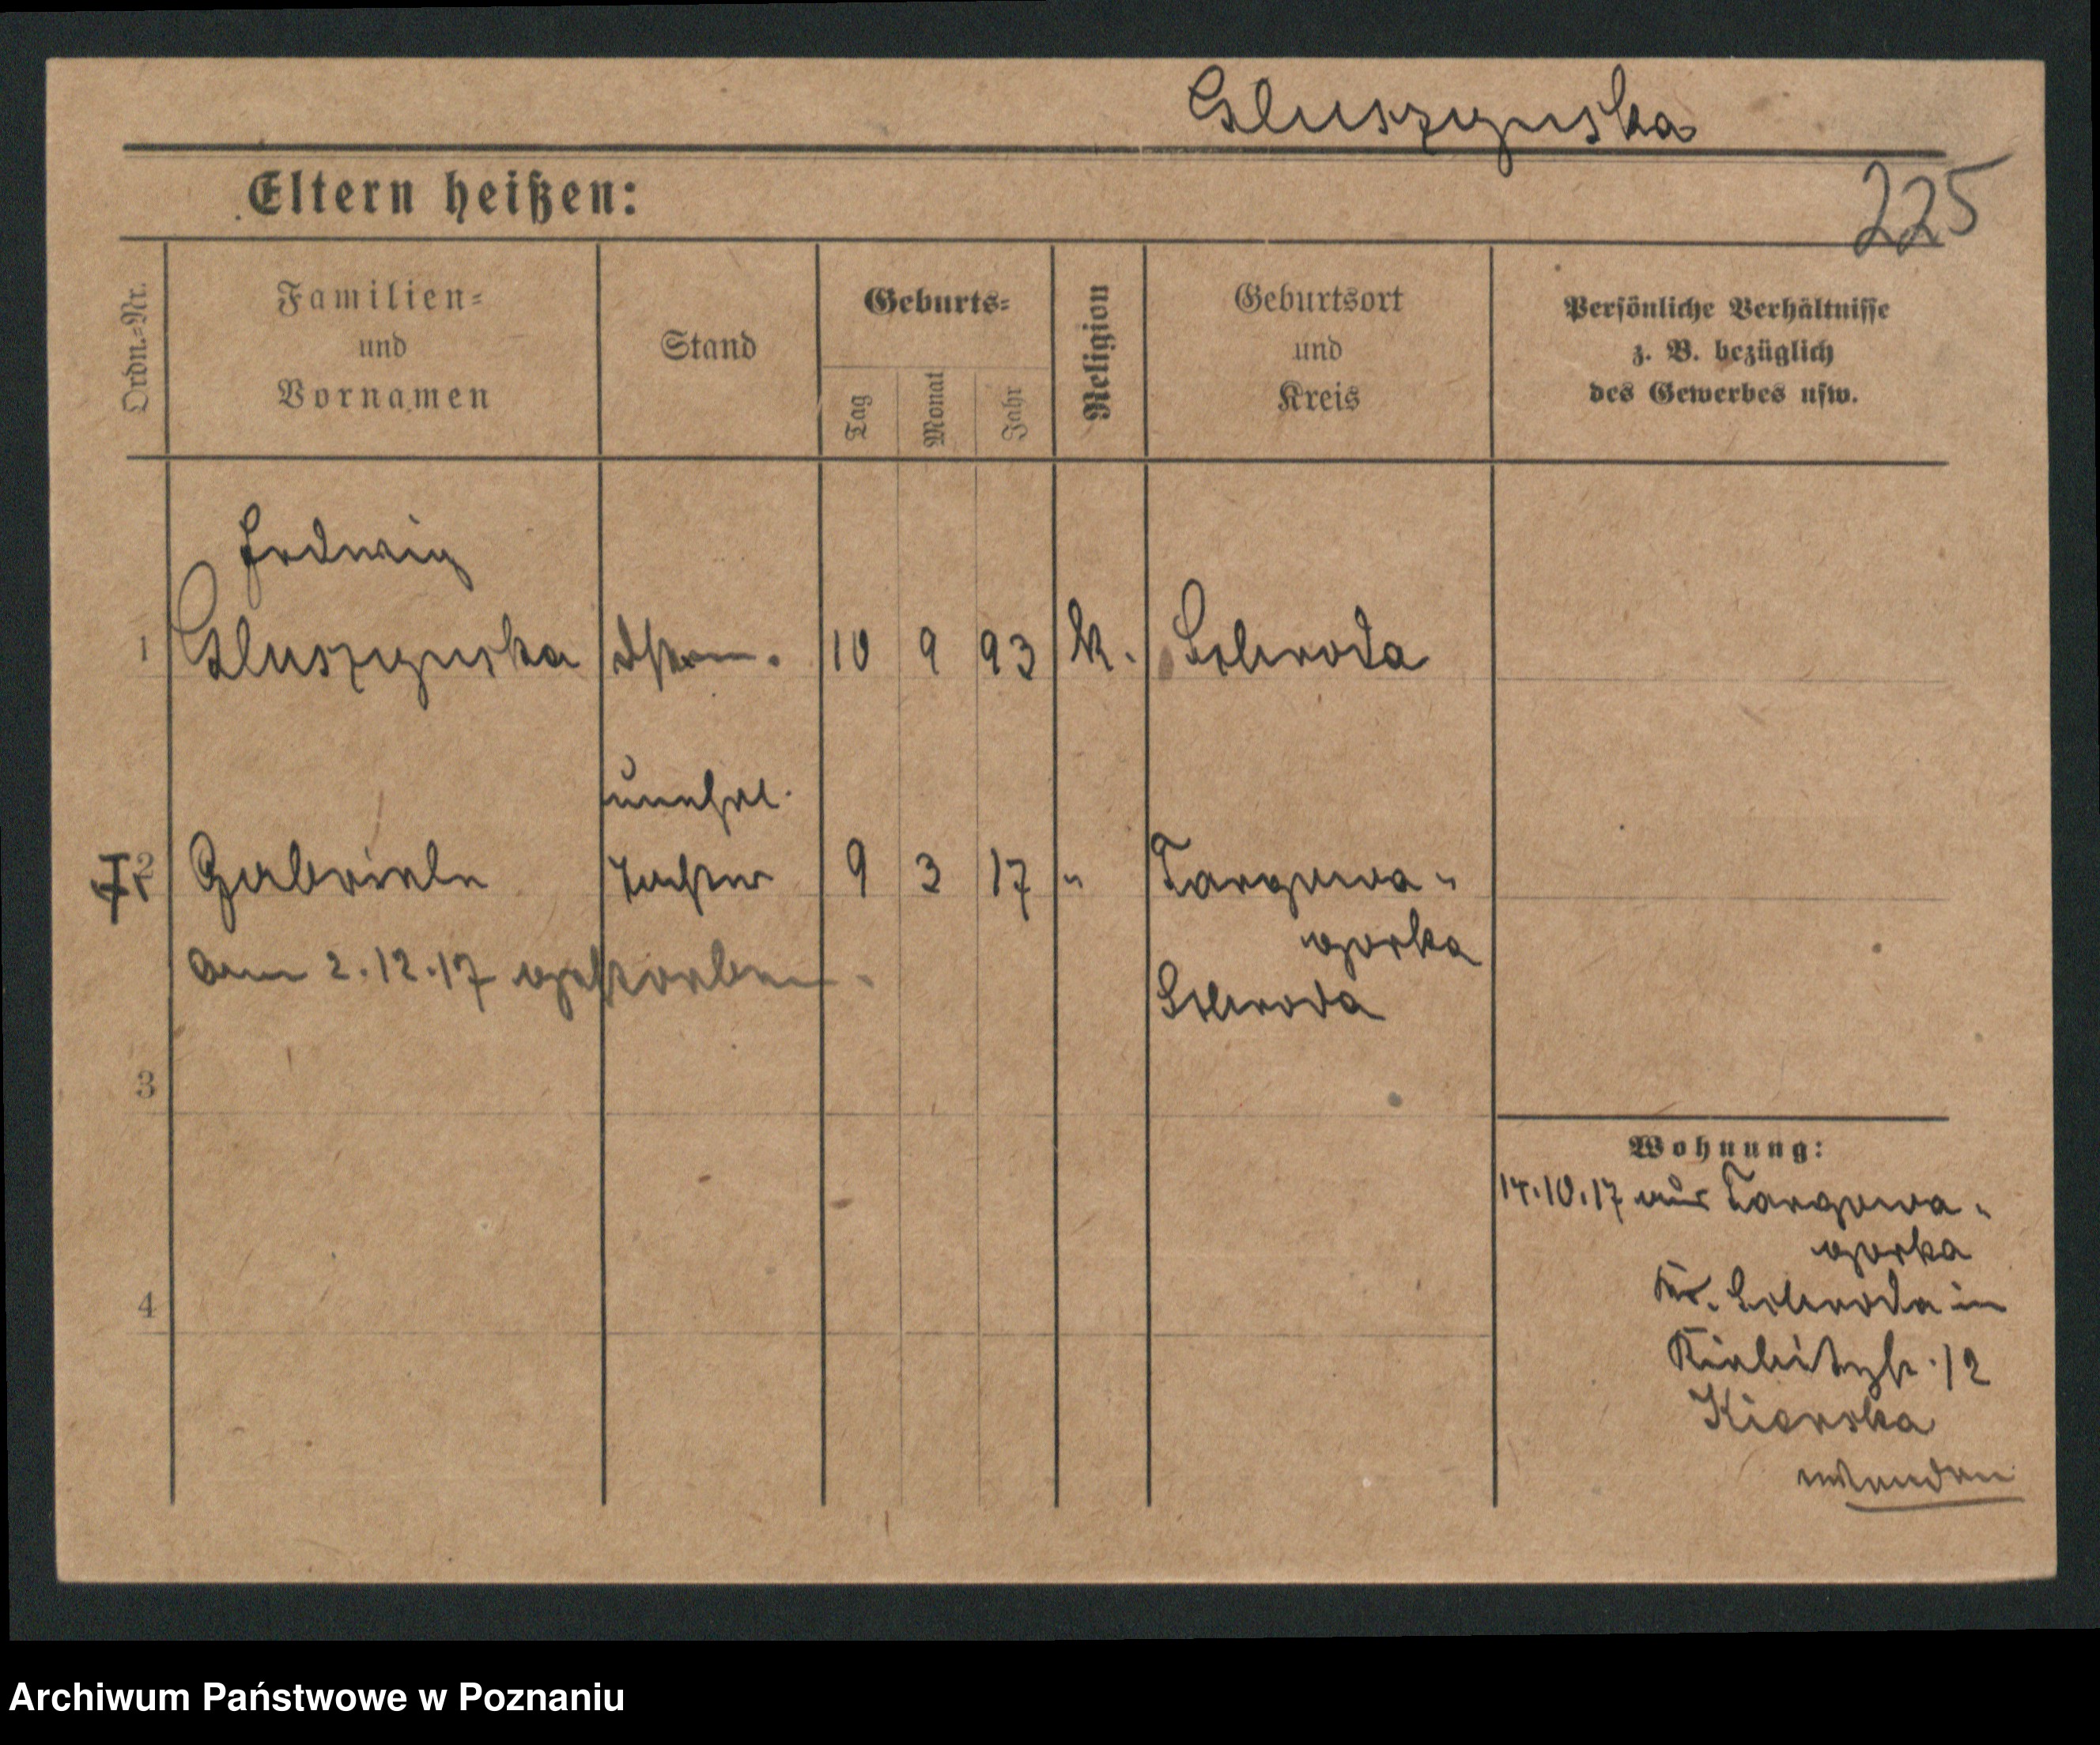 Gluszynska
225
Eltern heißen:
Ordn.=Nr.
Familien=
und
Vornamen
Stand
Geburts=
Tag
Monat
Jahr
Religion
Geburtsort
und
Kreis
Persönliche Verhältnisse
z. B. bezüglich
des Gewerbes usw.
Hedwig
1 Gluszynska 10 9 93 k. Schroda
unehel.
2 Gabriele Tochter 9 3 17 " Targowa-
gorka
am 2.12.17 gestorben.
Schroda
3
4
Wohnung:
14.10.17 aus Targowa-
gorka
Kr. Schroda in
Kiebitzstr. 12
Kierska
wenden
Archiwum Państwowe w Poznaniu